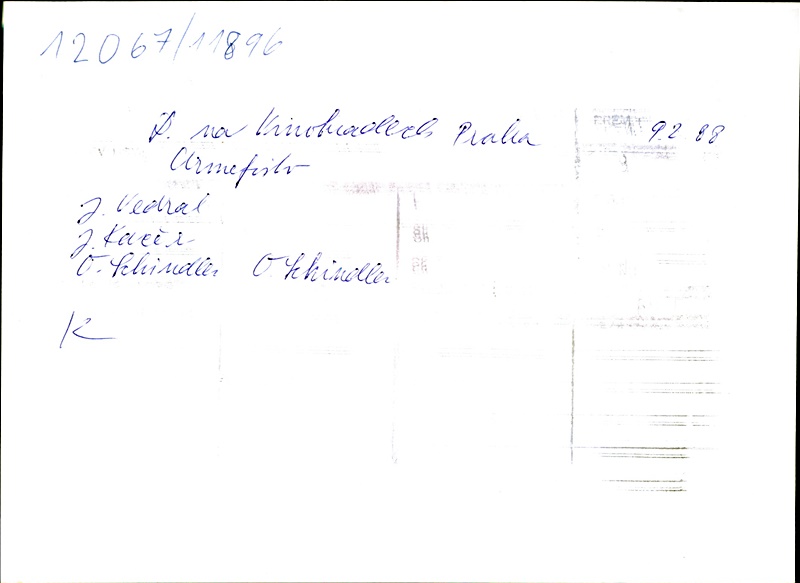 12067/11896
D. na Vinohradech Praha 9.2 88
J. Vedral
J. Kačer
O. Schindler O. Schindler
K